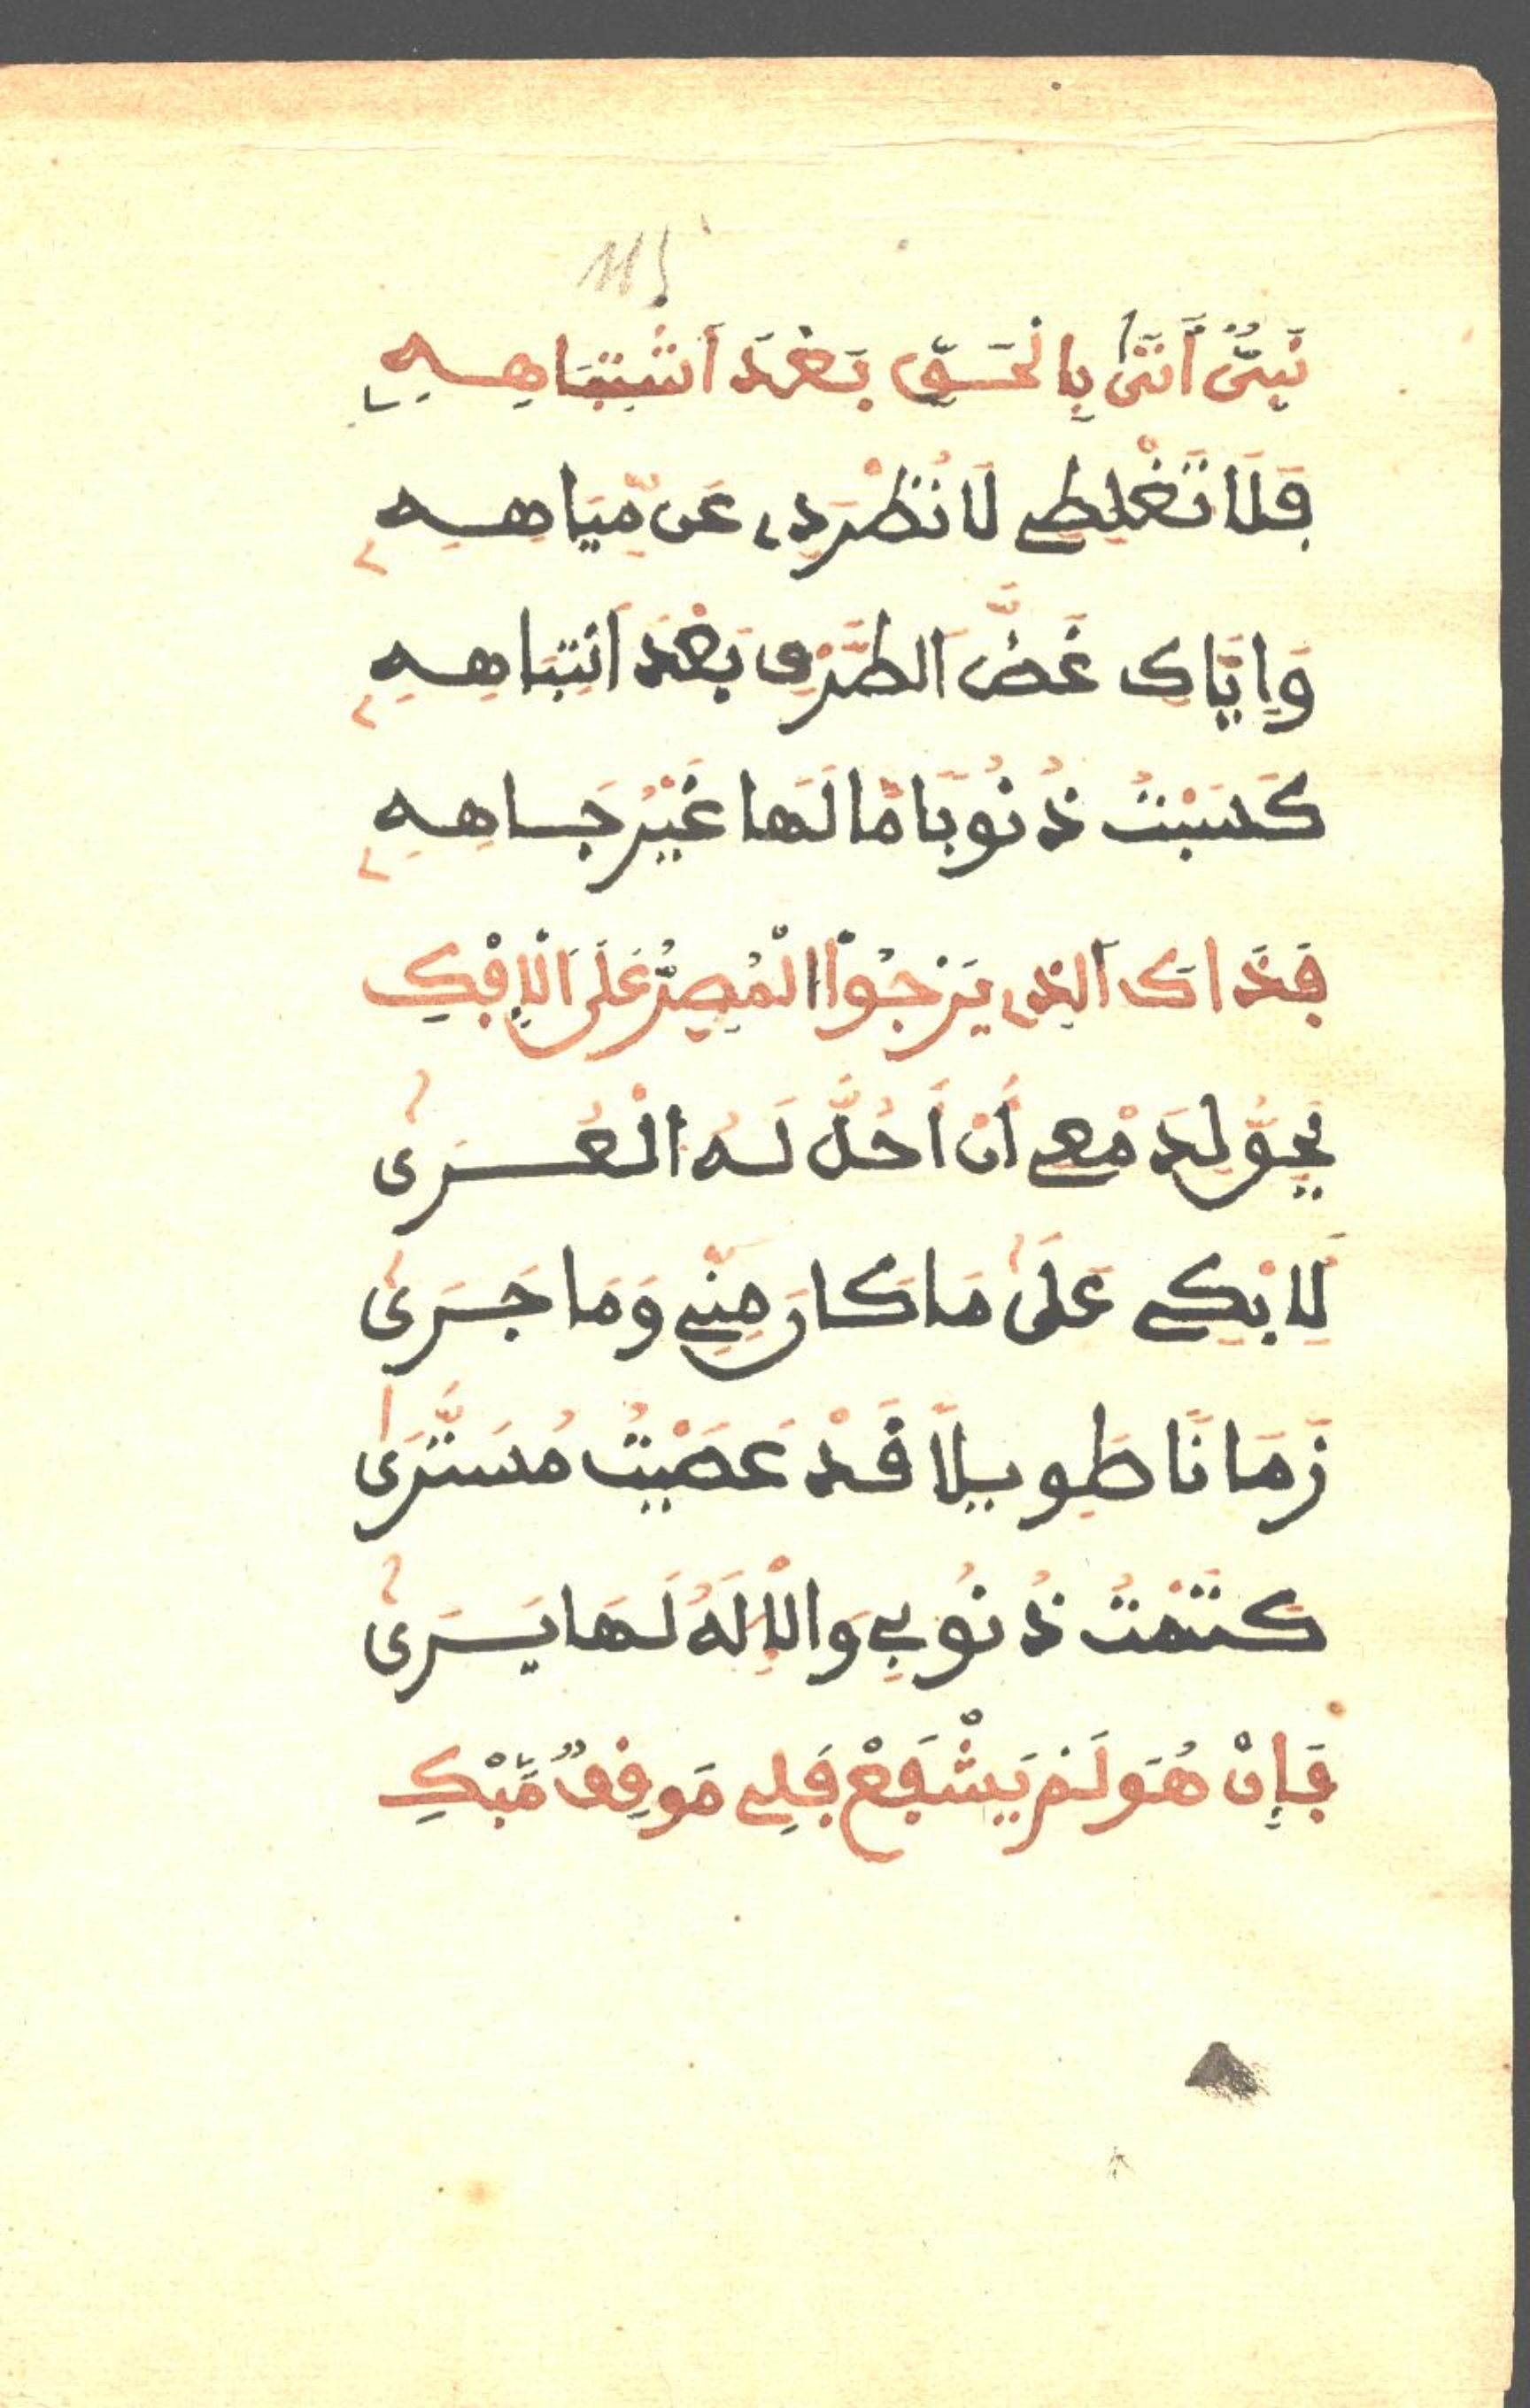 نَبِىٌّ أَتَىٰ بِالْحَقِّ بَعْدَ اَشْتِبَاهِهِ
فَلَا تَغْلِطِے لَا تُطْرَدِے عَن مِّيَاهِهِ
وَإِيَّاكِ غَضَّ اَلطَّرْفِ بَعْدَ اَنتِبَاهِهِ
كَسَبْتُ ذُنُوبَا مَّا لَهَا غَيْرُ جَاهِهِ
فَذَاكَ اَلذِے يَرْجُواْ الْمُصِرُّ عَلَى اَلْإِفْكِ
يَحِقُّ لِدَمْعِے أَنْ أَحُلَّ لَهُ الْعُرَىٰ
لِلَابْكِے عَلَىٰ مَا كَانَ مِنِّے وَمَا جَرَىٰ
زَمَانَا طَوِيلاً قَدْ عَصَيْتُ مُسَتَّرَىٰ
كَتَمْتُ ذُنُوبِے وَالْإِلَهُ لَهَا يَرَىٰ
فَإِنْ هُوَ لَمْ يَشْفَعْ فَلِے مَوْقِفٌ مُّبْكِ